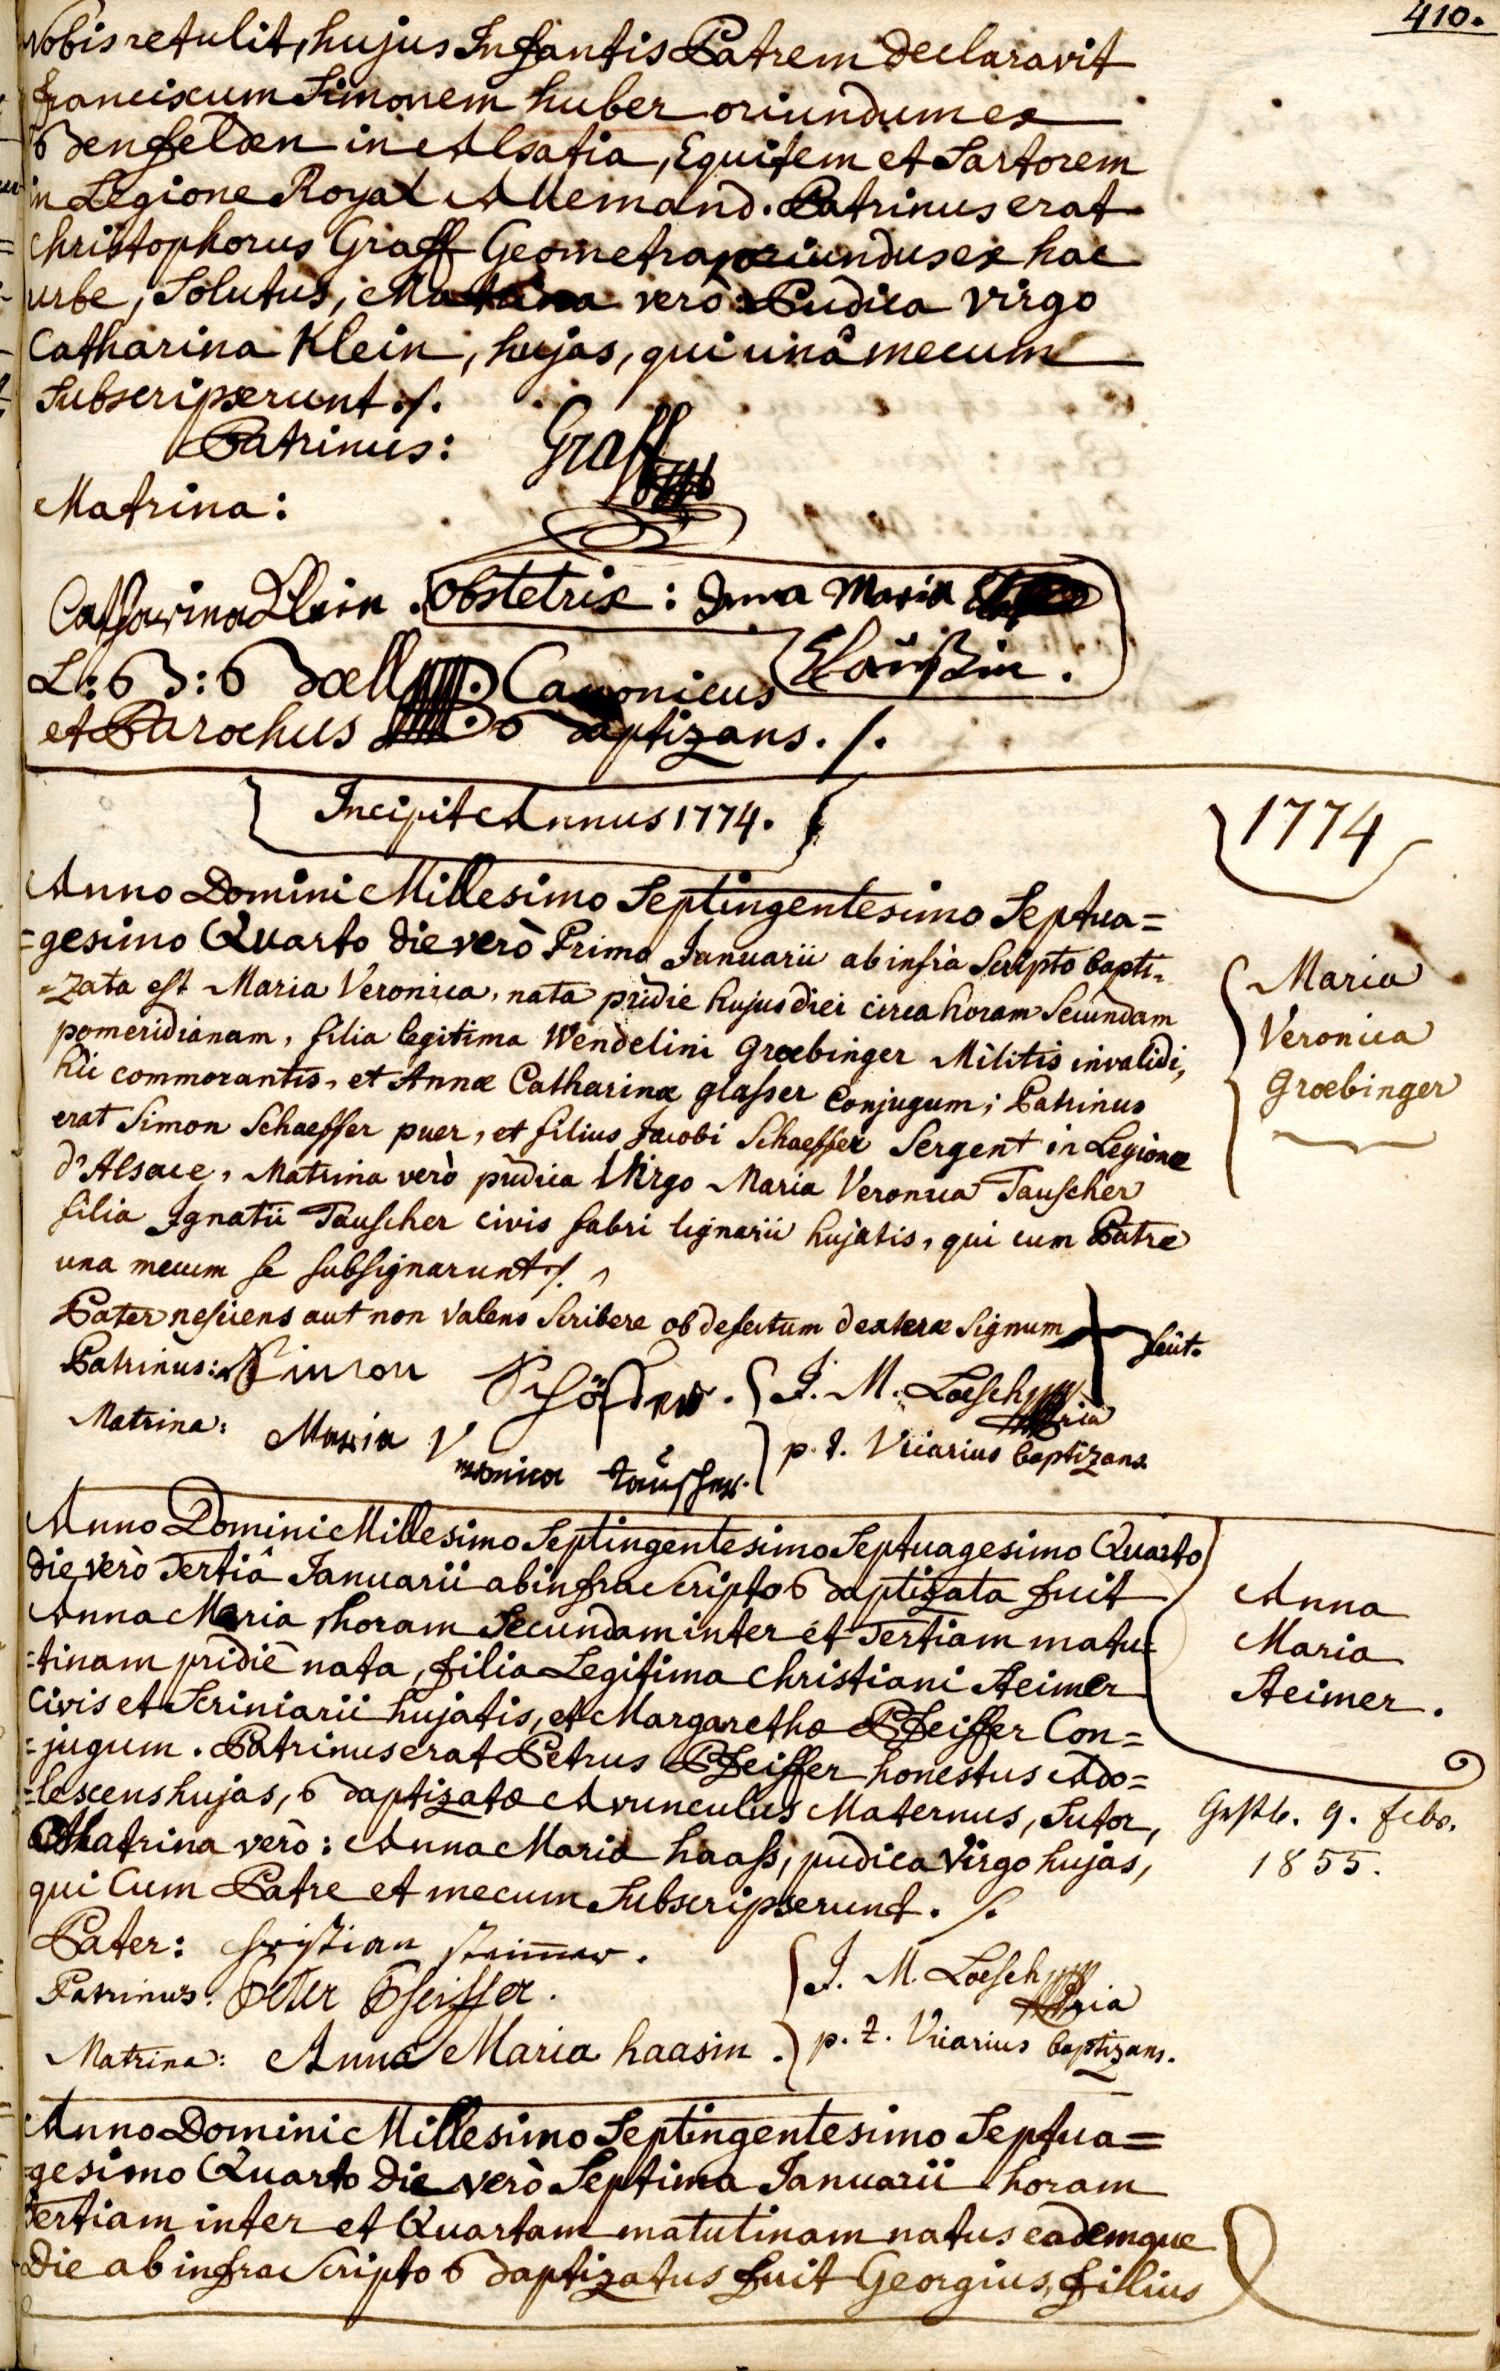 410.
nobis retulit, hujus Infantis Patrem declaravit
franciscum Simonem huber oriundum ex
Benfelden in Alsatia, Equitem et Sartorem
in Legione Royal Allemand. Patrinus erat
Christophorus Graff Geometra, oriundus ex hac
urbe, Solutus, Matrina verò: Pudica Virgo
Catharina Klein, hujas, qui unâ mecum
Subscripserunt ./.
Patrinus: Graff
Matrina:
Catharina Klein. obstetrix: Anna Maria
Claußin.
L: B: Boell Canonicus
et Parochus Baptizans ./.
Incipit Annus 1774.
1774
Anno Domini Millesimo Septingentesimo Septua=
=gesimo Quarto die verò Prima Januarii ab infrà Scripto bapti=
=zata est Maria Veronica, nata pridie hujus diei circa horam Secundam
pomeridianam, filia legitima Wendelini Groebinger Militis invalidi,
hìc commorantis, et Annæ Catharinæ glasser Conjugum; Patrinus
erat Simon Schaeffer puer, et filius Jacobi Schaeffer Sergent in Legione
d'Alsace, Matrina verò pudica Virgo Maria Veronica Tauscher
filia Ignatii Tauscher civis fabri lignarii hujatis, qui cum Patre
una mecum se subsignarunt ./.
Maria
Veronica
Groebinger
Pater nesciens aut non valens Scribere ob defectum dexteræ Signum + fecit.
Patrinus: Simon Schöffer. J. M. Loesch
Matrina: Maria Veronica taüscher. p. t. Vicarius baptizans
Anno Domini Millesimo Septingentesimo Septuagesimo Quarto
die verò Tertiâ Januarii ab infra Scripto Baptizata fuit
Anna Maria, horam Secundam inter et Tertiam matu=
=tinam pridiè nata, filia Legitima Christiani Steimer
Civis et Scriniarii hujatis, et Margarethæ Pfeiffer Con=
=jugum. Patrinus erat Petrus Pfeiffer honestus Ado=
=lescens hujas, Baptizatæ Avunculus Maternus, Sutor,
Matrina verò: Anna Maria haass, pudica Virgo hujas,
qui Cum Patre et mecum Subscripserunt ./.
Anna
Maria
Steimer.
Gestb. 9. febr.
1855.
Pater: Christian Steimer.
Patrinus: Peter Pfeiffer. J. M. Loesch
Matrina: Anna Maria haasin. p. t. Vicarius baptizans.
Anno Domini Millesimo Septingentesimo Septua=
=gesimo Quarto Die verò Septima Januarii horam
Tertiam inter et Quartam matutinam natus eademque
Die ab infra Scripto Baptizatus fuit Georgius, filius